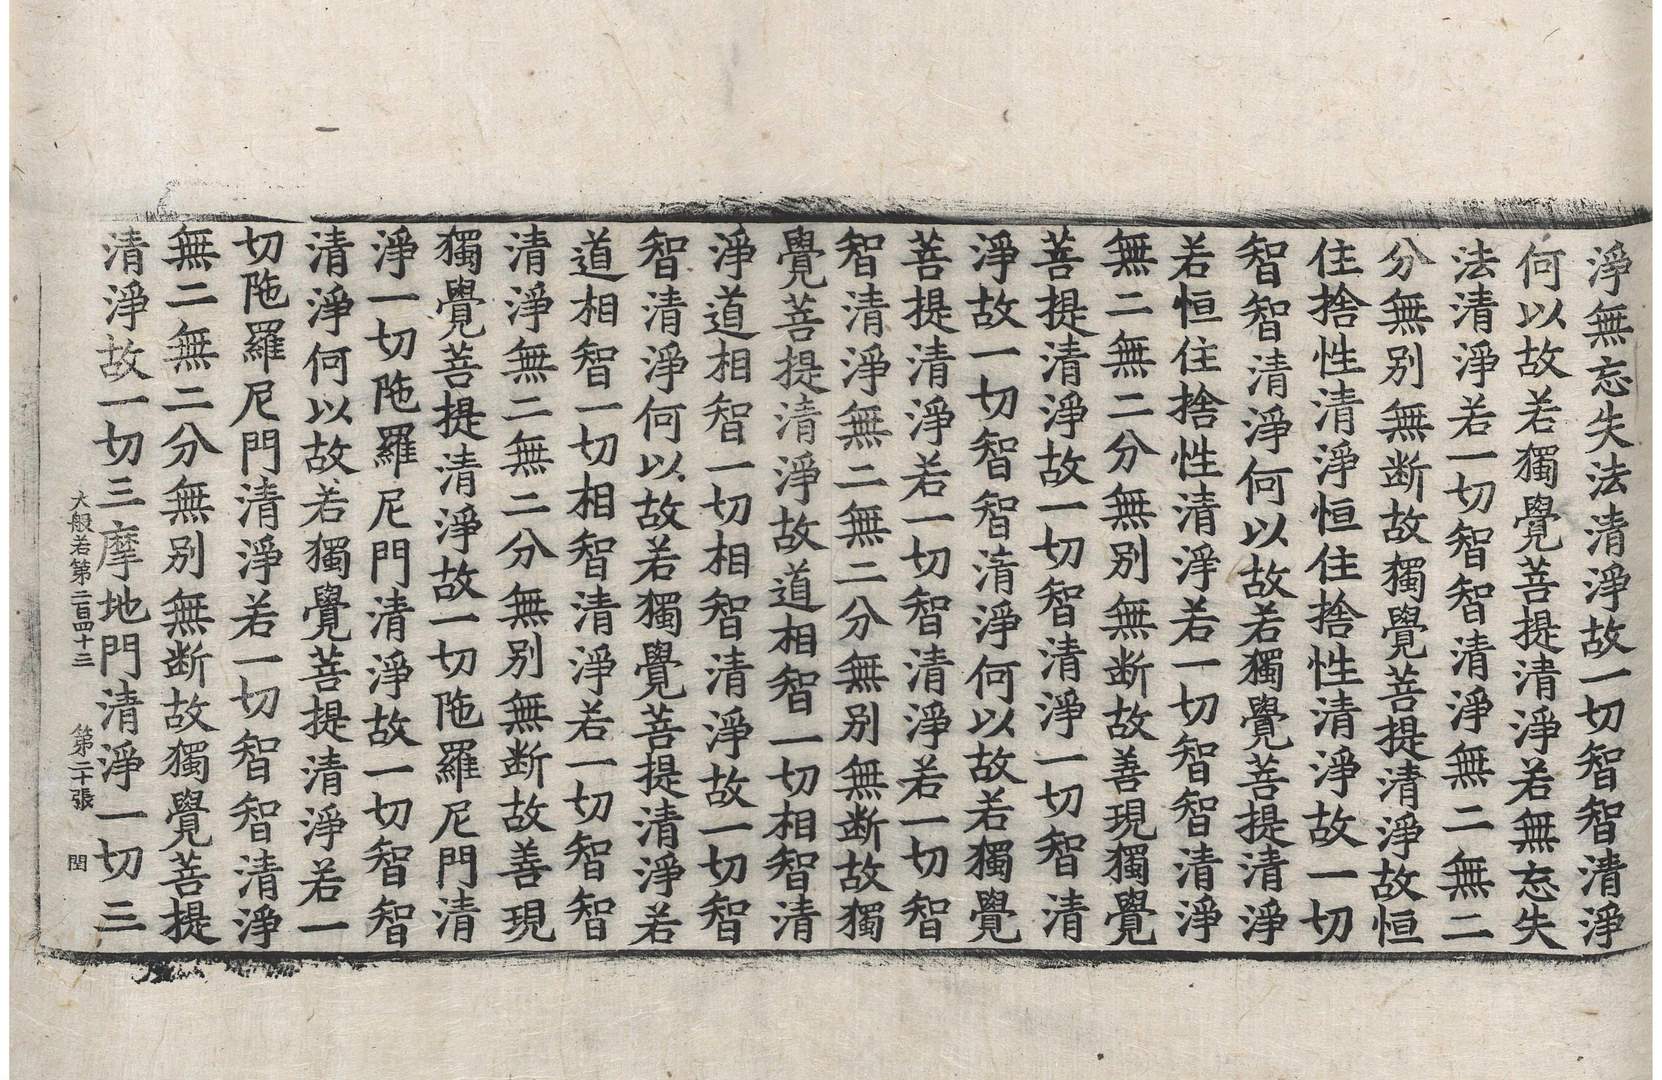 淨無忘失法清淨故一切智智清淨
何以故若獨覺菩提清淨若無忘失
法清淨若一切智智清淨無二無二
分無別無断故獨覺菩提清淨故恒
住捨性清淨恒住捨性清淨故一切
智智清淨何以故若獨覺菩提清淨
若恒住捨性清淨若一切智智清淨
無二無二分無別無断故善現獨覺
菩提清淨故一切智清淨一切智清
淨故一切智智清淨何以故若獨覺
菩提清淨若一切智清淨若一切智
智清淨無二無二分無別無断故獨
覺菩提清淨故道相智一切相智清
淨道相智一切相智清淨故一切智
智清淨何以故若獨覺菩提清淨若
道相智一切相智清淨若一切智智
清淨無二無二分無別無断故善現
獨覺菩提清淨故一切陁羅尼門清
淨一切陁羅尼門清淨故一切智智
清淨何以故若獨覺菩提清淨若一
切陁羅尼門清淨若一切智智清淨
無二無二分無別無断故獨覺菩提
清淨故一切三摩地門清淨一切三
大般若第二百四十三 第二十張 閏